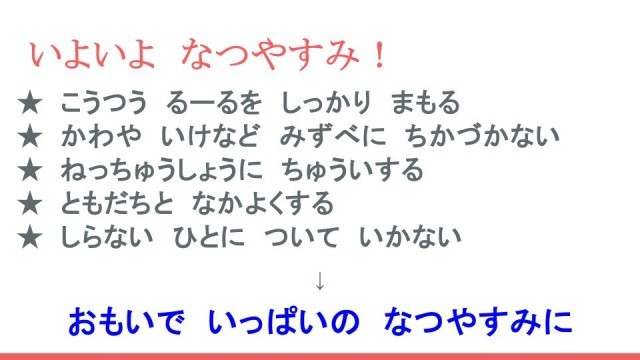 いよいよ なつやすみ！
★ こうつう るーるを しっかり まもる
★ かわや いけなど みずべに ちかづかない
★ ねっちゅうしょうに ちゅういする
★ ともだちと なかよくする
★ しらない ひとに ついて いかない
↓
おもいで いっぱいの なつやすみに